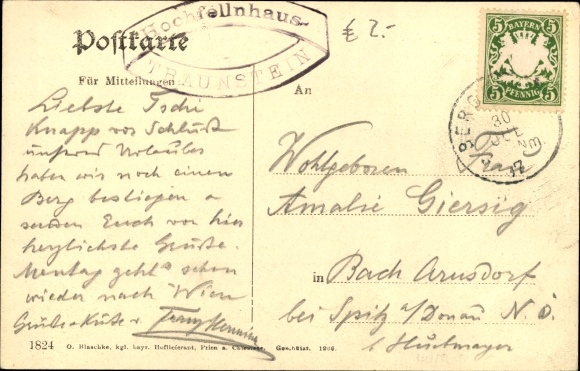 Postkarte
Hochfellnhaus
TRAUNSTEIN
€ 2.-
BAYERN
5 5
5 PFENNIG 5
Für Mitteilungen
An
BERG
30
12
Liebste
Knapp vor Schluß
unseres Urlaubes
haben wir noch einen
Berg bestiegen u
senden Euch von hier
herzlichste Grüße.
Montag geht's schon
wieder nach Wien
Frau
Wohlgeboren
Amalie Giersig
in Bach Arnsdorf
bei Spitz a/Donau N. Ö.
1824 O. Blaschke, kgl. bayr. Hoflieferant, Prien a. Chiemsee. Geschützt. 1906.